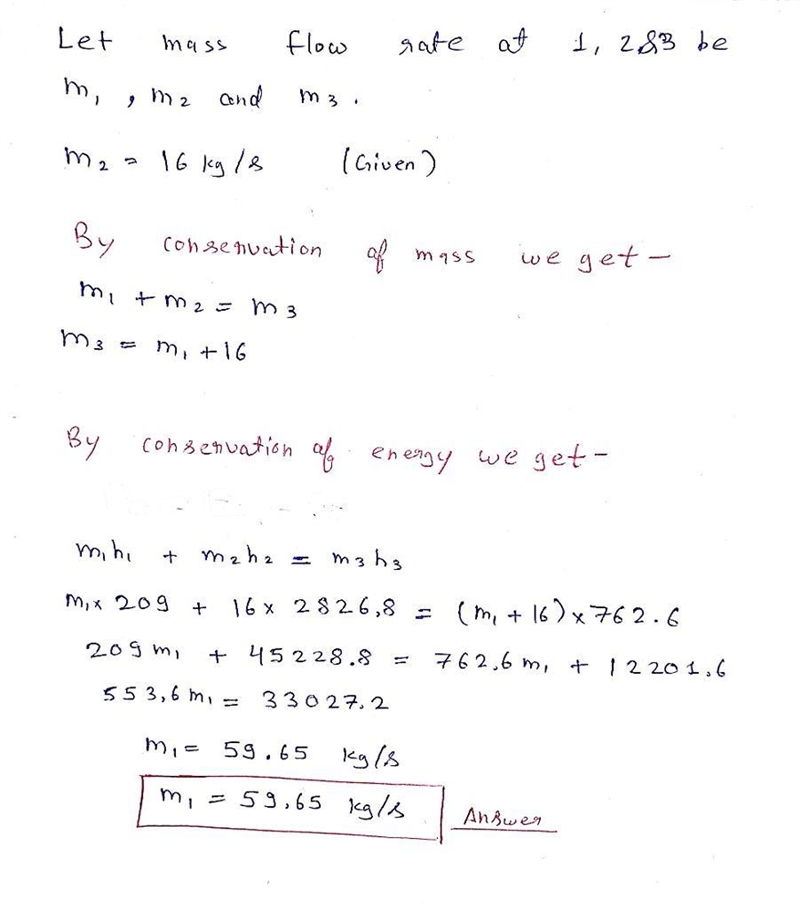 Let mass flow rate at 1, 2&3 be
m₁ , m₂ and m₃ .
m₂ = 16 kg/s (Given)
By conservation of mass we get –
m₁ + m₂ = m₃
m₃ = m₁ + 16
By conservation of energy we get –
m₁h₁ + m₂h₂ = m₃h₃
m₁x 209 + 16 x 2826,8 = (m₁ + 16) x 762.6
209 m₁ + 45228.8 = 762,6 m₁ + 12201,6
553,6 m₁ = 33027.2
m₁ = 59.65 kg/s
m₁ = 59,65 kg/s Answer